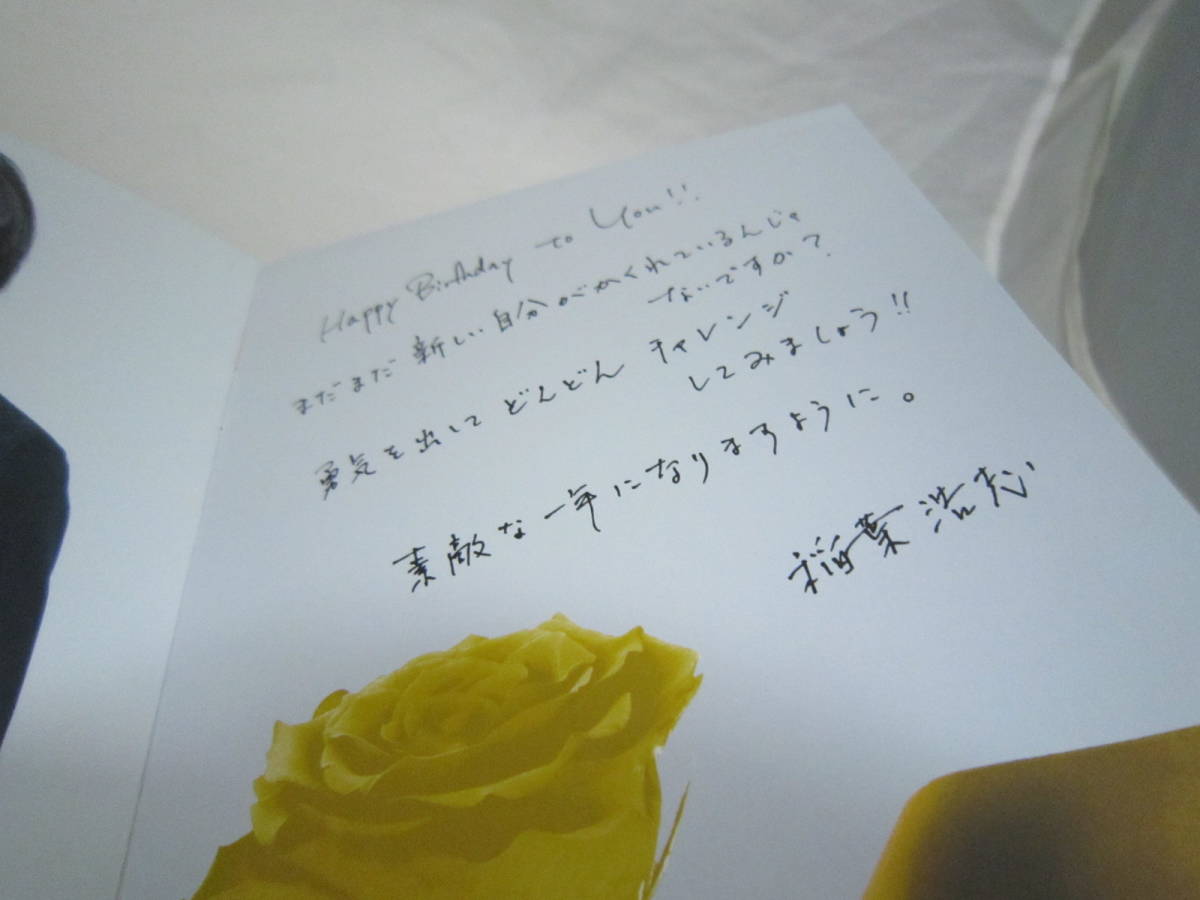 Happy Birthday to You!!
まだまだ 新しい自分がかくれているんじゃ
ないですか?
勇気を出して どんどん チャレンジ
してみましょう!!
素敵な一年になりますように。
稲葉浩志